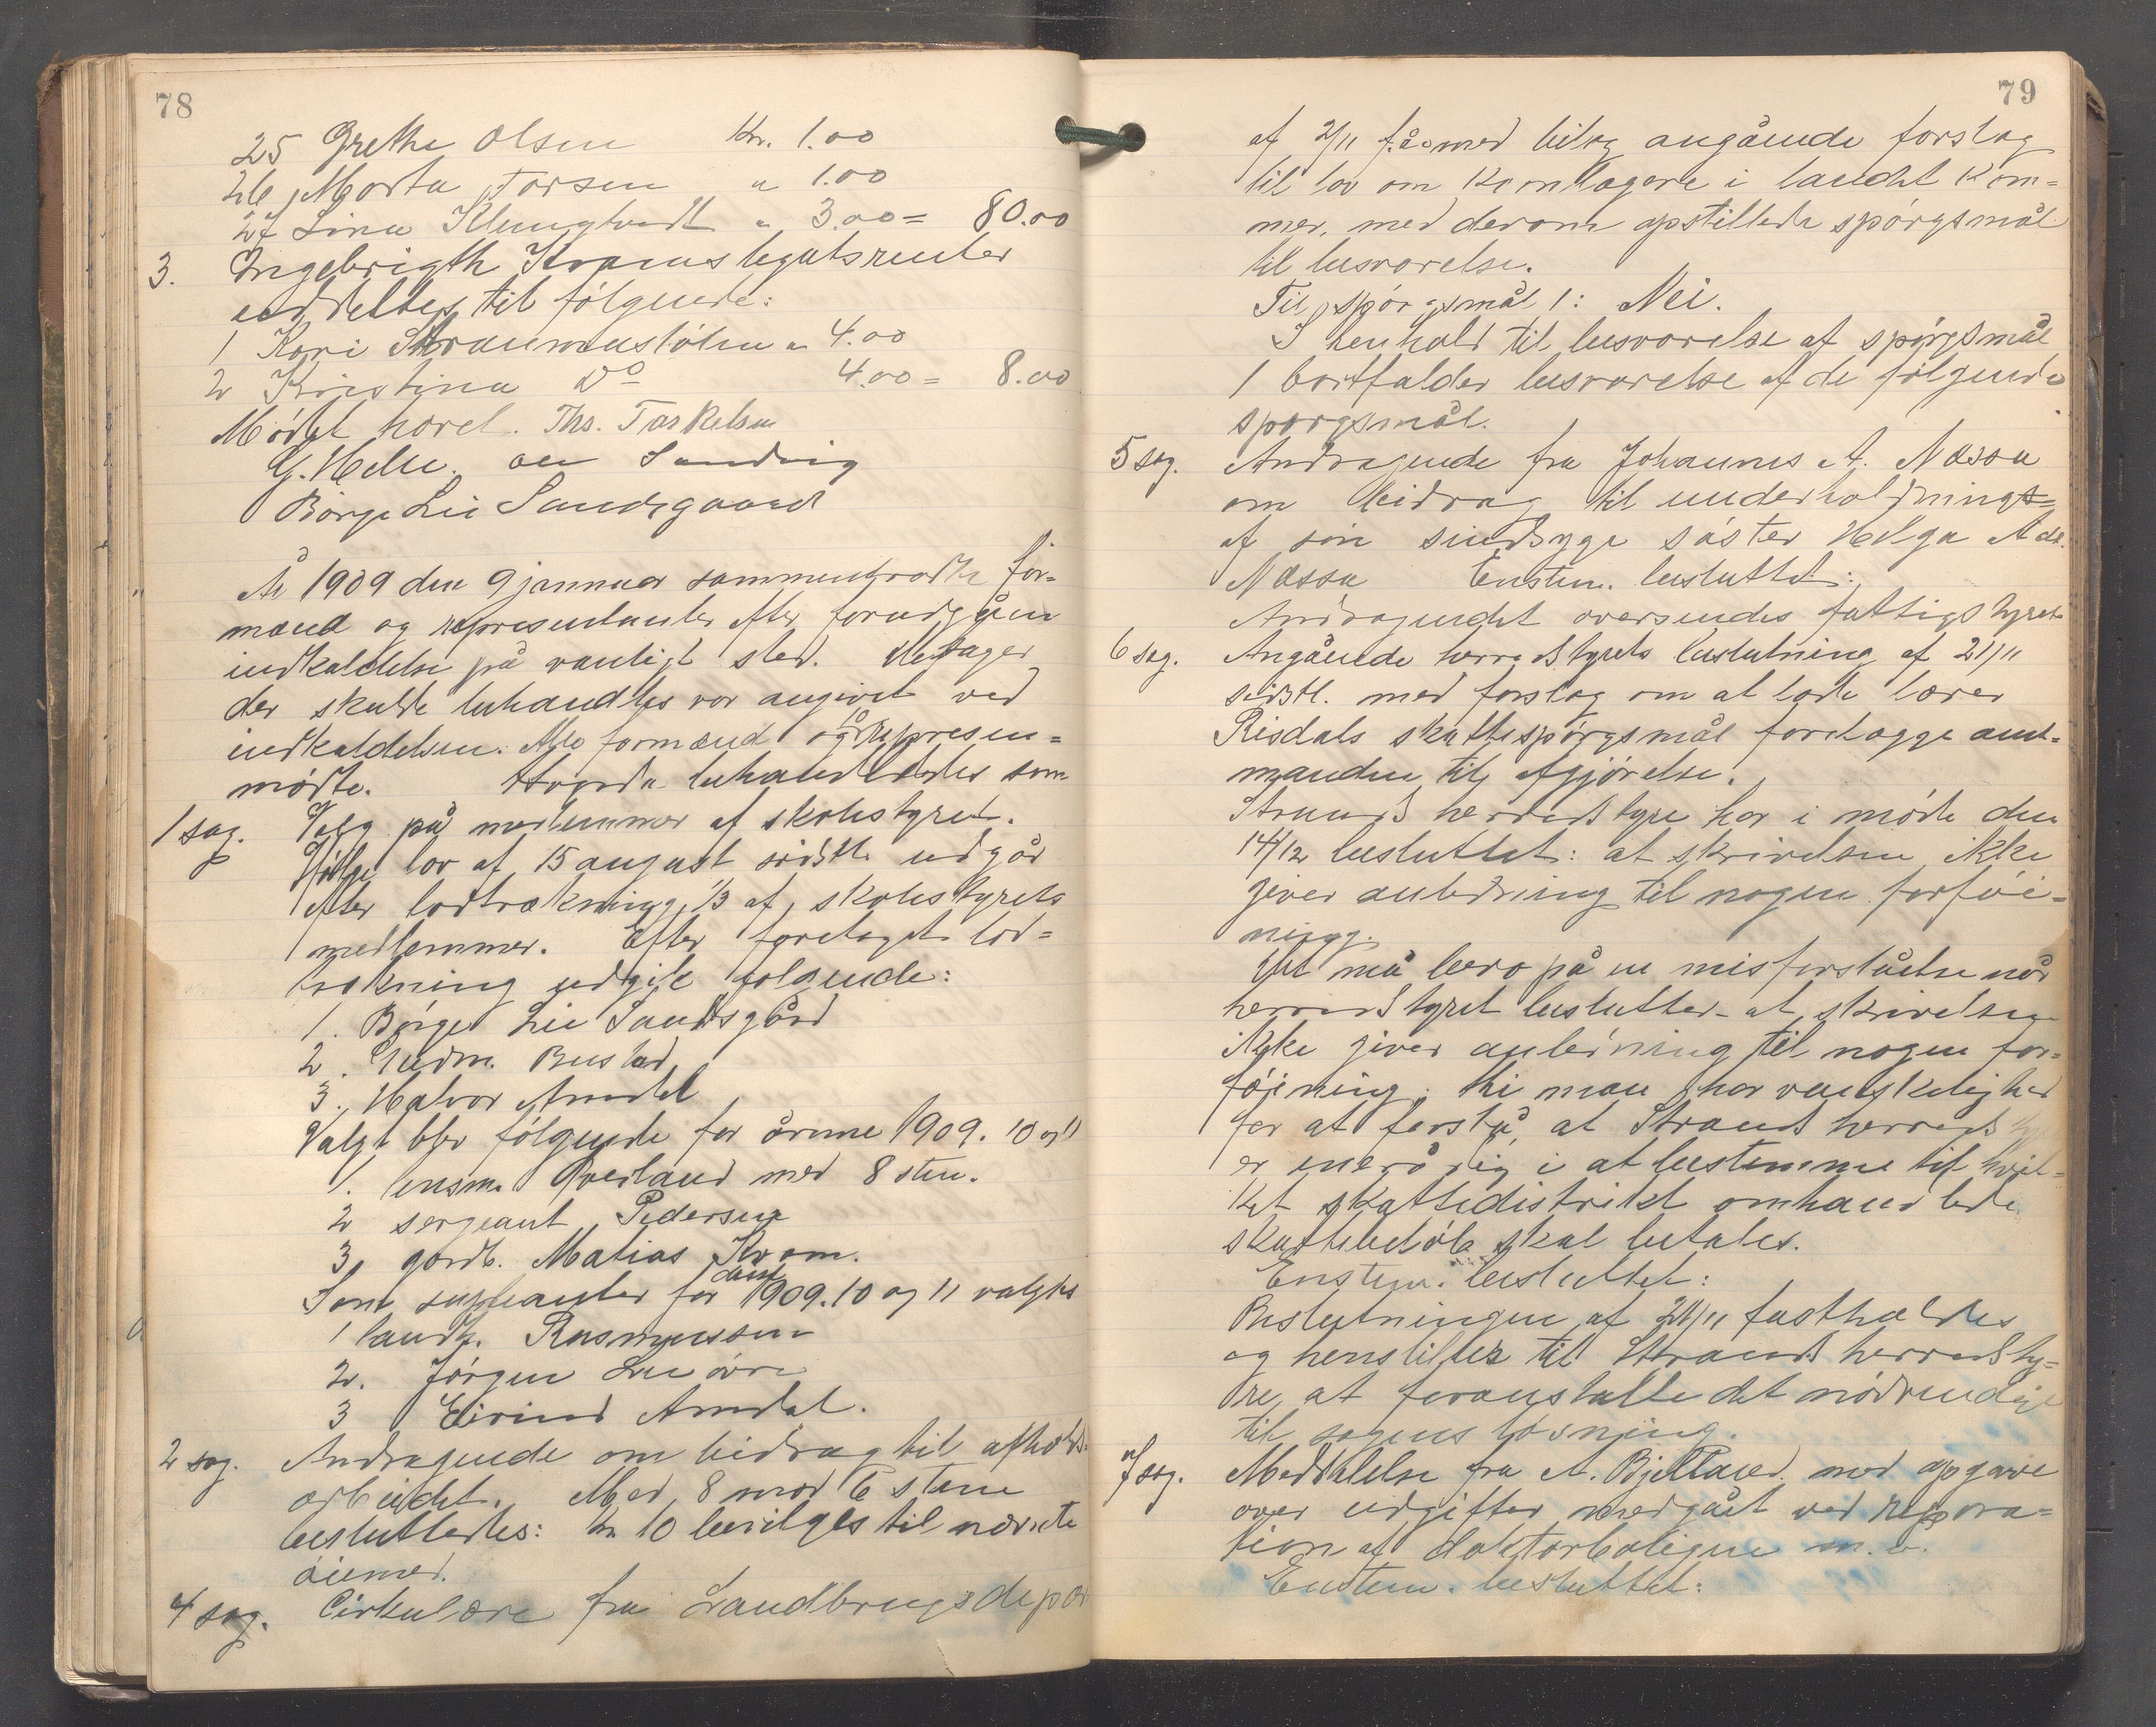 78
25 Grethe Olsen Kr. 1.00
26 Marta Torsen " 1.00
27 Lina Klungtvedt " 3.00 = 80.00
3. Ingebrigth Kvams legatsrenter
uddeltes til følgende:
1 Kari Straumastølen " 4.00
2 Kristina Do 4.00 = 8.00
Mødet hævet. Ths. Taskelsen
G. Helle. Ole Sandvig
Børge Lie Sandsgaard
År 1909 den 9 januar sammentraadte for=
mænd og repræsentanter efter forudgåen
indkaldelse på vanligt sted. De sager
der skulde behandles var angivet ved
indkaldelsen. Alle formænd og 10 repræsen=
mødte. Hvorda behandledes som
1 sag. Valg på medlemmer af skolestyret.
Ifølge lov af 15 august sidstl. udgår
efter lodtrækning 1/3 af skolestyrets
medlemmer. Efter foretaget lod=
trækning udgik følgende:
1. Børge Lie Sandsgård
2. Gudm. Bustad
3. Halvor Amdal
Valgt blev følgende for årene 1909. 10 og 11
1. lensm. Øverland med 8 stm.
2 sergeant Pedersen
3 gardb. Matias Kvam.
Som supleanter for 1909. 10 og 11 valgtes
1 landh. Rasmussen
2. Jørgen Lie
3 Eivind Amdal.
2 sag. Andragende om bidrag til afholds=
arbeidet. Med 8 mod 6 stem
besluttedes: kr 10 bevilges til nævnte
øiemed.
4 sag. Cirkulære fra Landbrugsdepar
79
af 2/11 f.å. med bilag angående forslag
til lov om Kornlagere i landet kom=
mer, med derom opstillede spørgsmål
til besvarelse.
Til spørgsmål 1: Nei.
I henhold til besvarelse af spørgsmål
1 bortfalder besvarelse af de følgende
spørgsmål.
5 sag. Andragende fra Johannes A. Næssa
om bidrag til underholdnings=
af sin sindsyge søster Helga Adr.
Næssa Enstem. besluttet:
Andragendet oversendes fattigstyret
6 sag. Angående herredstyrets beslutning af 21/11
sidstl. med forslag om at lade lærer
Risdals skattespørgsmål forelægge amt=
manden til afgjørelse.
Strands herredstyre har i møde den
14/12 besluttet: at skrivelsen ikke
giver anledning til nogen forføi=
ning.
Det må bero på en misforståelse når
herredstyret beslutter at skrivelsen
ikke giver anledning til nogen for=
føining, thi man har vanskelighed
for at forstå, at Strands herreds
er enerådig i at bestemme til hvil=
ket skattedistrikt omhandlede
skattebeløb skal betales.
Enstem. besluttet:
Beslutningen af 21/11 fastholdes
og henstilles til Strands herredsty=
re at foranstalte det nødvendige
til sagens løsning.
7 sag. Meddelelse fra A. Bjelland med opgave
over udgifter medgået ved repara=
tion af doktorboligen m.v.
Enstem. besluttet: